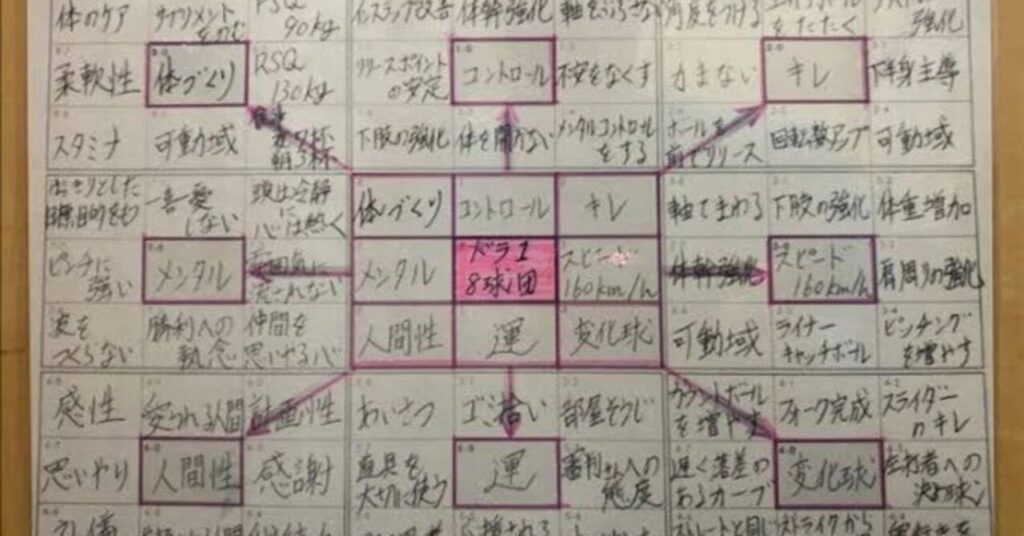 体のケア
サプリメント
をのむ
FSQ
90kg
インステップ改善
体幹強化
軸をぶらさない
角度をつける
をたたく
強化
柔軟性
体づくり
RSQ
130kg
リリースポイント
の安定
コントロール
不安をなくす
力まない
キレ
下半身主導
スタミナ
可動域
夜7杯
朝3杯
下肢の強化
体を開かない
メンタルコントロール
をする
ボールを
前でリリース
回転数アップ
可動域
はっきりとした
目標、目的をもつ
一喜一憂
しない
頭は冷静に
心は熱く
体づくり
コントロール
キレ
軸でまわる
下肢の強化
体重増加
ピンチに
強い
メンタル
雰囲気に
流されない
メンタル
ドラ1
8球団
スピード
160km/h
体幹強化
スピード
160km/h
肩周りの強化
波を
つくらない
勝利への
執念
仲間を
思いやる心
人間性
運
変化球
可動域
ライナー
キャッチボール
ピッチング
を増やす
感性
愛される人間
計画性
あいさつ
ゴミ拾い
部屋そうじ
カウントボール
を増やす
フォーク完成
スライダー
のキレ
思いやり
人間性
感謝
道具を
大切に使う
運
審判さんへの
態度
遅く落差の
あるカーブ
変化球
左打者への
決め球
礼儀
応援される
ストレートと同じ
ストライクから
奥行きを